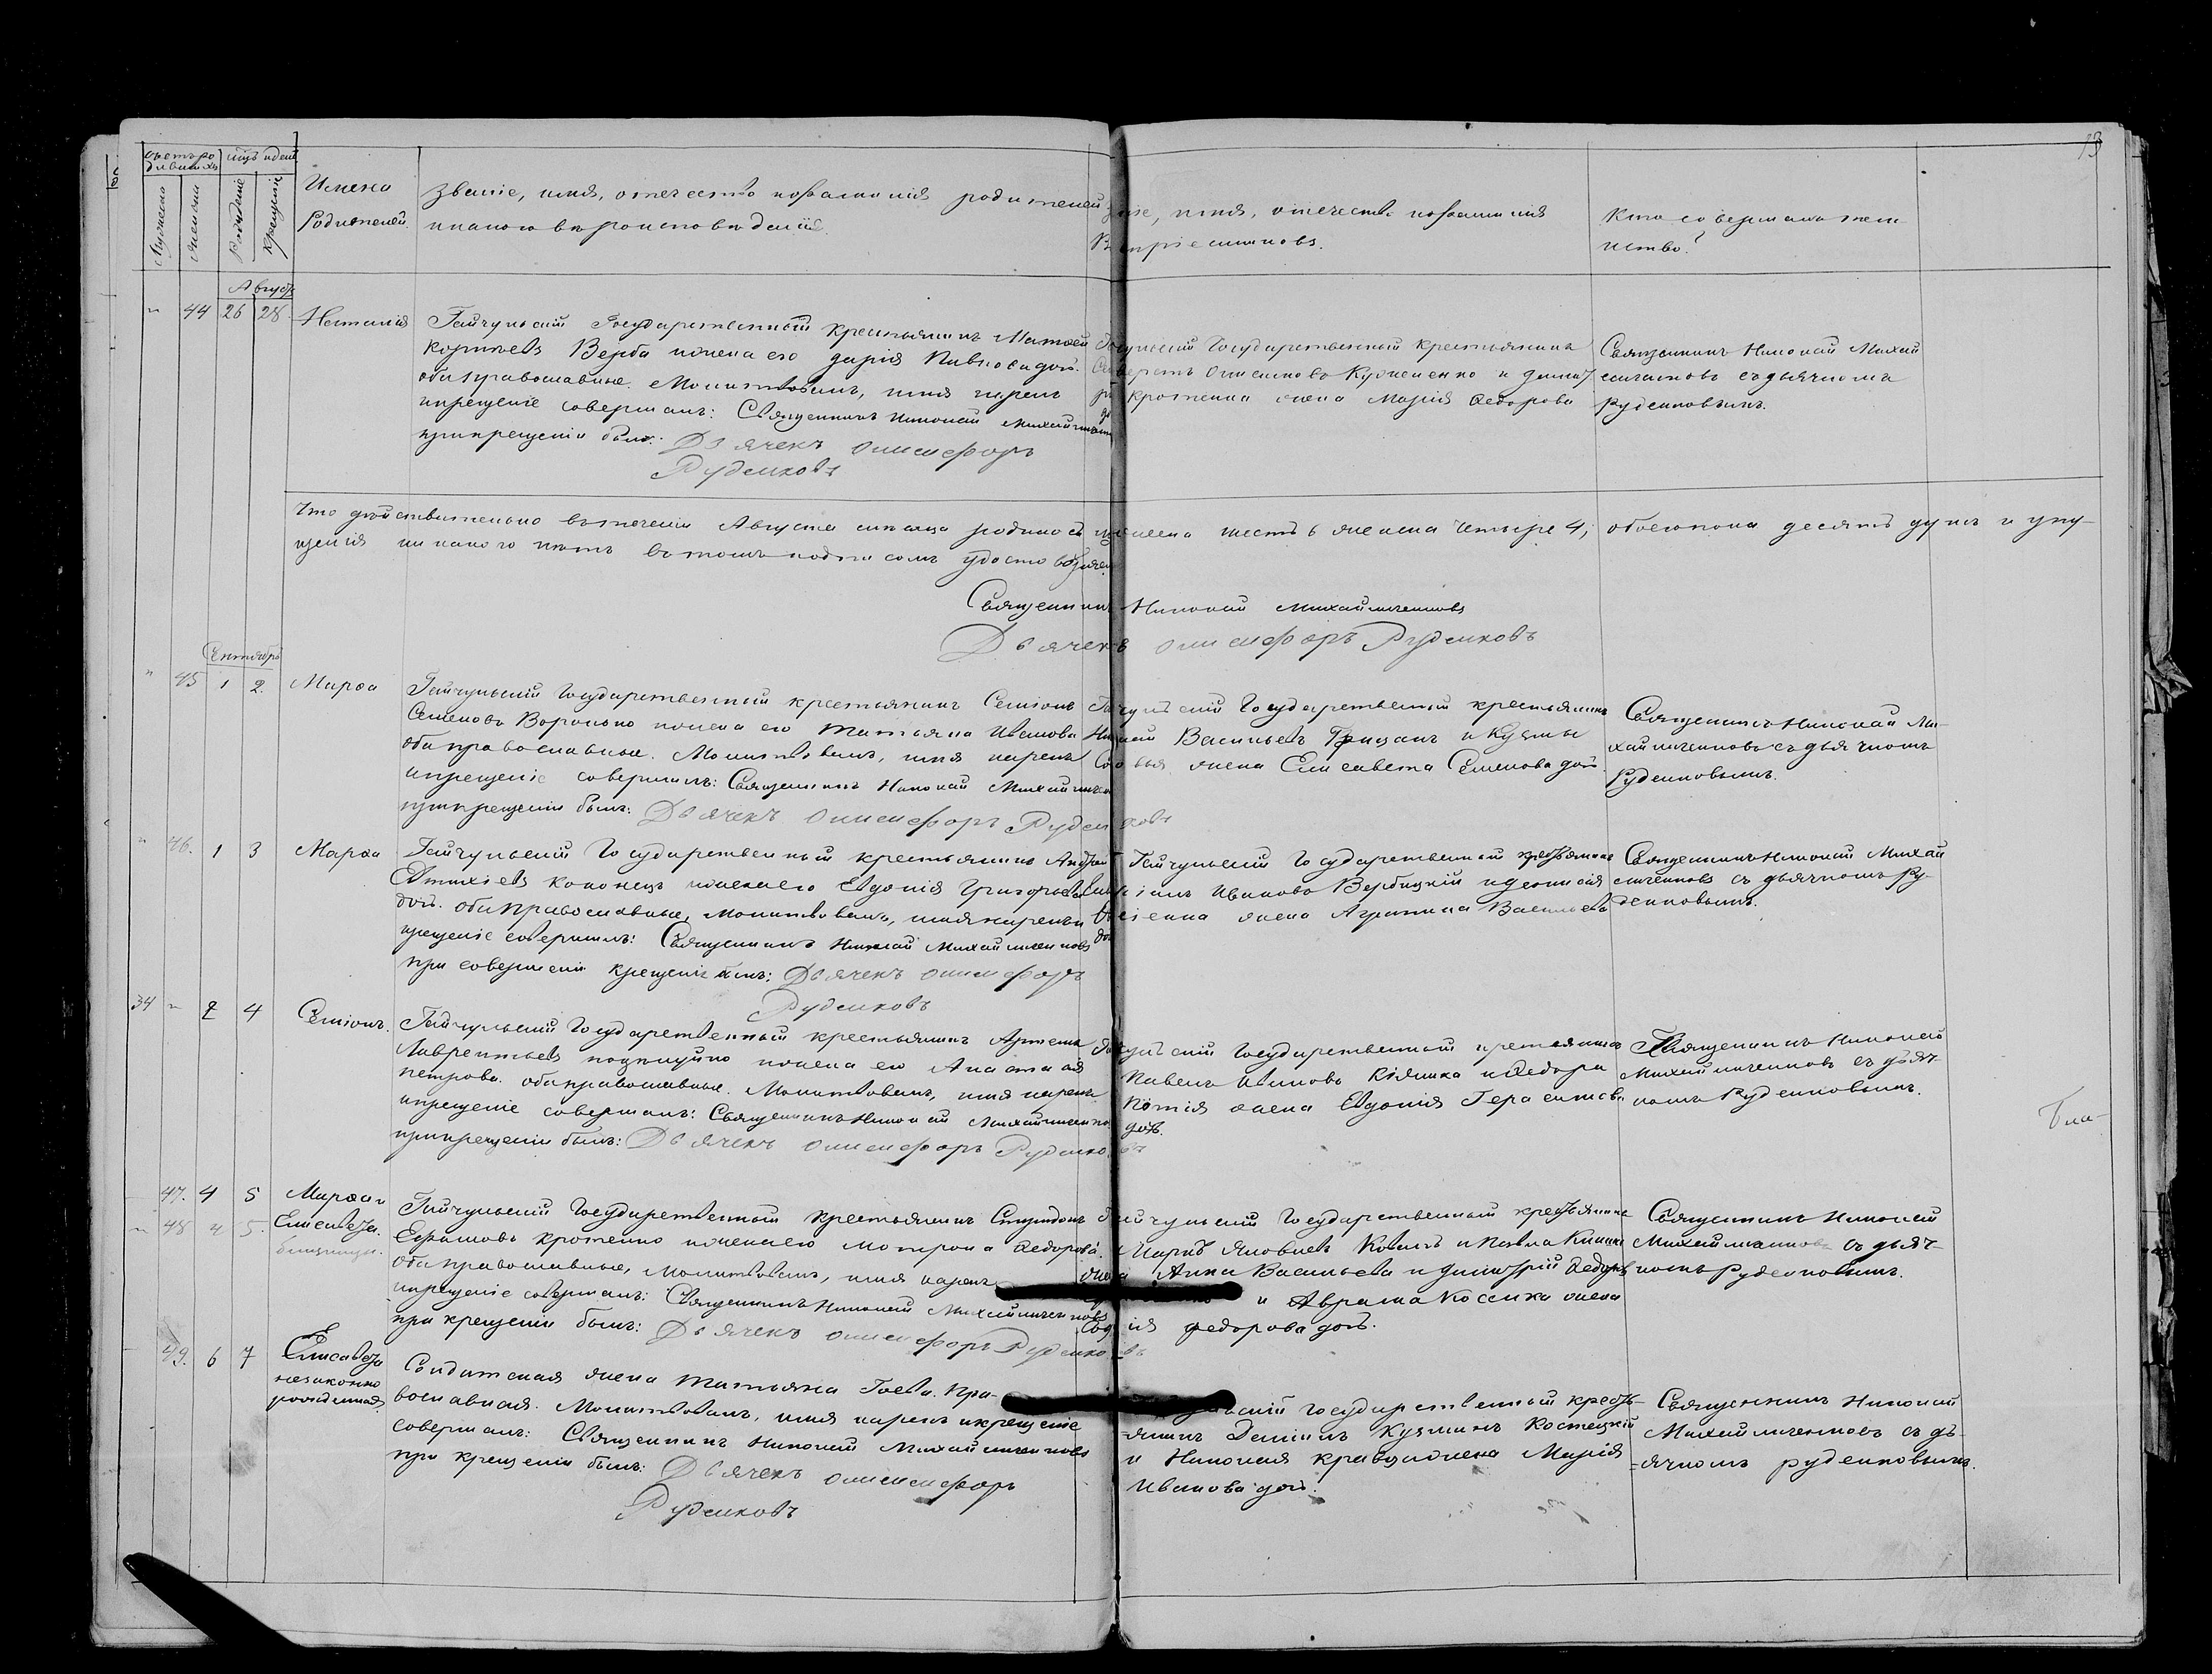 13
Счетъ родившихся
Мѣсяцъ и день
Мужеска
Женска
Рожденіе
Крещеніе
Имена
Родителей.
Званіе, имя, отечество и фамилія родителей
и какого вѣроисповѣданія.
имя, отечество и фамилія
Воспріемниковъ.
Кто совершалъ таин
ство?
Августъ
" 44 26 28 Наталія
Гайчульскій Государственный крестьянинъ Матѳей
Корнѣевъ Верба и жена его Дарія Павлова доч.
оба православные. Молитвовалъ, имя нарекъ
и крещеніе совершалъ: Священникъ Николай
при крещеніи былъ: Дьячекъ Онисифоръ
Рудеиковъ
Государственный крестьянинъ
Онисимовъ и
жена Марія Ѳедорова
Священникъ Николай Михай
личенковъ съ дьячкомъ
Руденковымъ.
Что дѣйствительно въ теченіи Августа мѣсяца родилось шесть 6 женска четыре 4, обоего пола десять душъ и упу-
щенія никакого нѣтъ въ томъ подписомъ
Священникъ Николай Михайличенковъ
Дьячекъ Онисифоръ Рудеиковъ
Сентябрь
" 45 1 2. Марѳа
Гайчульскій Государственный крестьянинъ Семіонъ
Семеновъ и жена его Татьяна Иванова
оба православные. Молитвовалъ, имя нарекъ
и крещеніе совершилъ: Священникъ Николай
при крещеніи былъ: Дьячекъ Онисифоръ Рудеиковъ
Государственный крестьянинъ
Васильевъ Грицанъ и Кузмы
жена Елисавета Семенова доч.
Священникъ Николай Ми-
хайличенковъ съ дьячкомъ
Руденковымъ.
" 46. 1 3 Марѳа
Гайчульскій Государственный крестьянинъ Андрей
Евтихіевъ и жена его Евдокія Григорьева
доч. оба православные, Молитвовалъ, имя нарекъ и
крещеніе совершилъ: Священникъ Николай Михайличенковъ
при совершеніи крещенія былъ: Дьячекъ Онисифоръ
Рудеиковъ
Гайчульскій Государственный крестьянинъ
Ивановъ Вербицкій и
жена Агрипина Васильева
Священникъ Николай Михай
личенковъ съ дьячкомъ Ру-
денковымъ.
34 " 2 4 Семіонъ.
Гайчульскій Государственный крестьянинъ Артемъ
Лаврентьевъ и жена его Анастасія
Петрова. оба православные. Молитвовалъ, имя нарекъ
и крещеніе совершалъ: Священникъ Николай
при крещеніи былъ: Дьячекъ Онисифоръ Рудеиковъ
Государственный крестьянинъ
Павелъ Ивановъ и Ѳедора
жена Евдокія Герасимова
доч.
Священникъ Николай
Михайличенковъ съ дьяч-
комъ Руденковымъ.
47. 4 5 Марѳа и
" 48 4 5. Елисавета.
близнецы.
Гайчульскій Государственный крестьянинъ Спиридонъ
Ефимовъ и жена его Матрона Ѳедорова.
оба православные, Молитвовалъ, имя нарекъ
и крещеніе совершалъ: Священникъ Николай Михайличенковъ
при крещеніи былъ: Дьячекъ Онисифоръ Рудеиковъ
Государственный крестьянинъ
Яковлевъ и Павла
Анна Васильева и Димитрій Ѳедоровъ
и Аврама жена
Ѳедорова доч.
Священникъ Николай
Михайличенковъ съ дьяч-
комъ Руденковымъ.
49. 6 7 Елисавета
незаконно
рожденная
Солдатская жена Татьяна Гоева. Пра-
вославная. Молитвовалъ, имя нарекъ и крещеніе
совершалъ: Священникъ Николай Михайличенковъ
при крещеніи былъ: Дьячекъ Онисифоръ
Рудеиковъ
Государственный кресть-
янинъ Даніилъ Кузминъ Костецкій
и Николая жена Марія
Иванова доч.
Священникъ Николай
Михайличенковъ съ дь-
ячкомъ Руденковымъ.